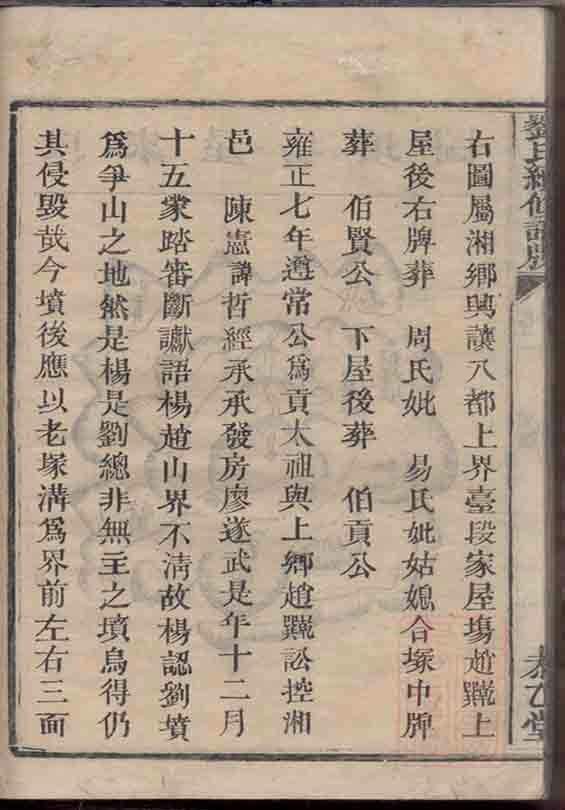 劉氏續修譜牒
太乙堂
右圖屬湘鄉興讓八都上界臺段家屋塲趙躐上
屋後右牌葬　周氏妣　易氏妣姑媳合塚中牌
葬　伯賢公　下屋後葬　伯貢公
雍正七年遵常公爲貢太祖與上鄉趙躐訟控湘
邑　陳憲諱哲經承承發房廖遂武是年十二月
十五衆踏審斷讞語楊趙山界不清故楊認劉墳
爲爭山之地然是楊是劉總非無主之墳烏得仍
其侵毀哉今墳後應以老塚溝爲界前左右三面